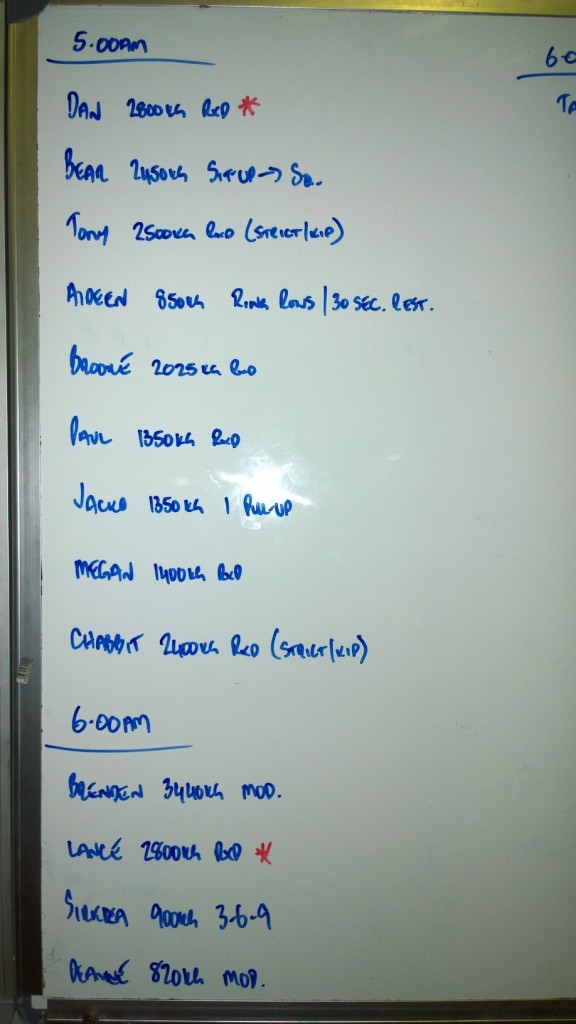 5.00AM
DAN 2800KG RXD *
BEAR 2450KG SIT-UP → SQ.
TONY 2500KG RXD (STRICT/KIP)
AIDEEN 850KG RING ROWS / 30 SEC. REST.
BROOKE 2025KG RXD
PAUL 1350KG RXD
JACKO 1350KG 1 PULL-UP
MEGAN 1400KG RXD
CHABBIT 2400KG RXD (STRICT/KIP)
6.00AM
BRENDEN 3440KG MOD.
LANCE 2800KG RXD *
900KG 3-6-9
DEANNE 820KG MOD.
6.0
TA